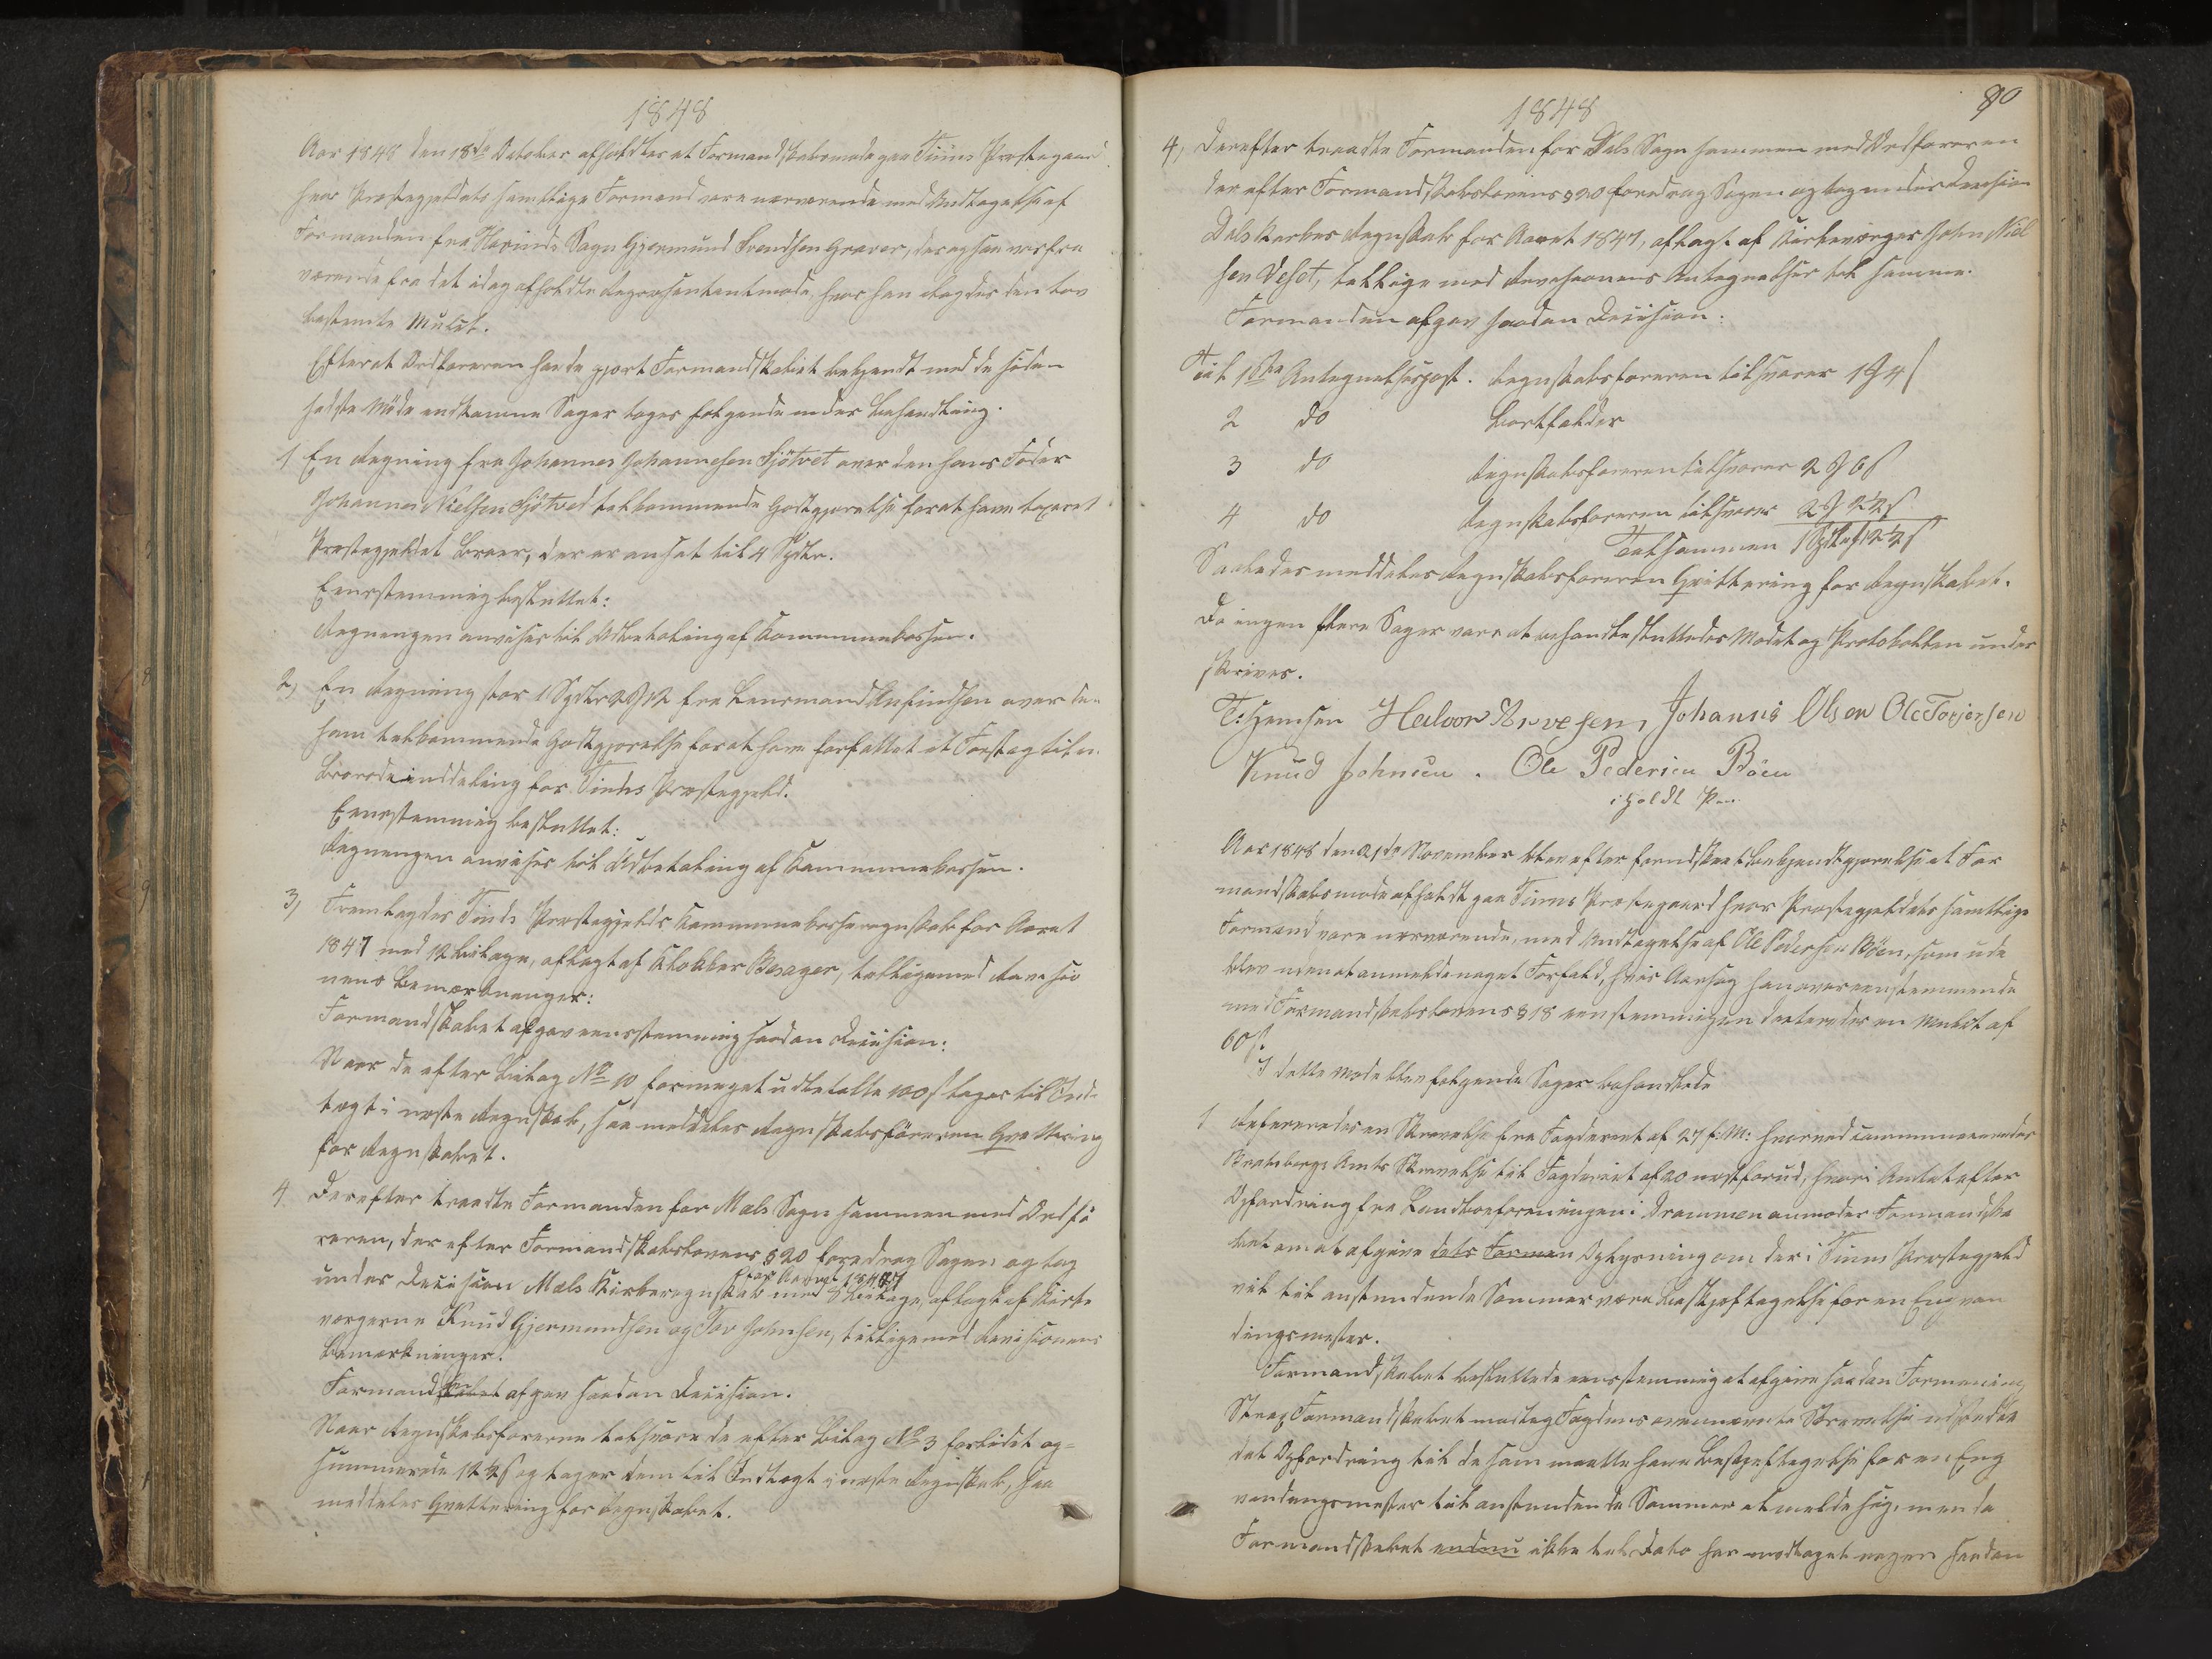 1848
Aar 1848 den 18de October afholdtes et Formandskabsmøde paa Tinns Præstegaard
hvor Præstegjeldets samtlige Formænd vare nærværende med Undtagelse af
Formanden fra Hovinds Sogn Gjermund Svendsen Graver, der ogsaa var fra
værende fra det idag afholdte Repræsentantmøde, hvor han ilagdes den lov
bestemte Mulct.
Efterat Ordføreren havde gjort Formandskabet bekjendt med de siden
sidste Møde indkomne Sager toges følgende under Behandling.
1 En Regning fra Johannes Johannesen Sjötvet over den hans Fader
Johannes Nielsen Sjötved tilkommende Godtgjørelse for at have taxeret
Præstegjeldet Broer, der er ansat til 4 Spdlr.
Eenstemmig besluttet:
Regningen anvises til Udbetaling af Kommunekassen.
2, En Regning stor 1 Spdlr 2 12 fra Lensmand Anfindsen over den
ham tilkommende Godtgjørelse for at have forfattet et Forslag til
Broroeinddeling for Tinds Præstegjeld.
Eenstemmig besluttet:
Regningen anvises til Udbetaling af Kommunekassen.
3, Fremlagdes Tinds Præstegjelds Kommunekasseregnskab for Aaret
1847 med 12 Bilage, aflagt af Klokker Besager, tilligemed Revisio
nens Bemærkninger:
Formandskabet afgav eenstemmig saadan Decision:
Naar de efter Bilag No 10 formeget udbetalte 100 s tages til Ind-
tægt i næste Regnskab, saa meddeles Regnskabsföreren Qvittering
for Regnskabet.
4. Derefter traadte Formanden for Mæls Sogn sammen med Ordfö
reren, der efter Formandskabslovens § 20 foredrog Sagen og tog
for Aaret 1847
under Decision Mæls Kirkeregnskab med 8 Bilage, aflagt af Kirke
værgerne Knud Gjermundsen og Tov Johnsen, tilligemed Revisionens
Bemærkninger.
Formanden afgav saadan Decision.
Naar Regnskabsførerne tilsvare de efter Bilag No 3 forlidet op-
summerede 12 ½ s og tager dem til Indtægt i næste Regnskab, saa
meddeles Qvittering for Regnskabet.
1848
80
4, Derefter traadte Formanden for Dals Sogn sammen med Ordføreren
der efter Formandskabslovens § 20 foredrog Sagen og tog under Decision
Dals Kirkes Regnskab for Aaret 1847, aflagt af Kirkeværger John Niel
sen Veset, tillige med Revisionens Antegnelser til samme.
Formanden afgav saadan Decision:
Til 1ste Antegnelsespost. Regnskabsføreren tilsvarer 1 4 s
2 do Bortfalder
3 do Regnskabsføreren tilsvarer 2 6 s
4 do Regnskabsføreren tilsvarer 2 2 ½ s
Tilsammen 1 Spdlr 12 ½ s
Saaledes meddeles Regnskabsføreren Qvittering for Regnskabet.
Da ingen flere Sager vare at behandle sluttedes Mødet og Protokollen under
skrives.
Halvor Arvesen, Johannis Olsen Ole Torjersen
Knud Johnsen. Ole Pedersen Böen
iholdt Pen
Aar 1848 den 21de November blev efter forudskeet Bekjendtgjørelse et For
mandskabsmøde afholdt paa Tinns Præstegaard hvor Præstegjeldets samtlige
Formænd vare nærværende, med Undtagelse af Ole Pedersen Böen, som ude
blev uden at anmelde noget Forfald, hvis Aarsag han overeenstemmende
med Formandskabslovens § 18 eenstemmigen dicteredes en Mulct af
60 s.
I dette Møde blev følgende Sager behandlede
1 Refereredes en Skrivelse fra Fogderiet af 27 f: M: hvorved communiceredes
Bratsbergs Amts Skrivelse til Fogderiet af 20 næstforud, hvori Amtet efter
Opfordring fra Landboforeningen i Drammen anmoder Formandska
bet om at afgive dets Formen Oplysning om der i Tinns Præstegjeld
vil til anstundende Sommer være Beskjæftigelse for en Engvan
dingsmester.
Formandskabet besluttede eenstemmig at afgive saadan Formening
Strax Formandskabet modtog Fogdens ovennævnte Skrivelse udstedte
det Opfordring til de som maatte have Beskjæftigelse for en Eng
vandingsmester til anstundende Sommer at melde sig, men da
Formandskabet endnu ikke til Dato har modtaget nogen saadan